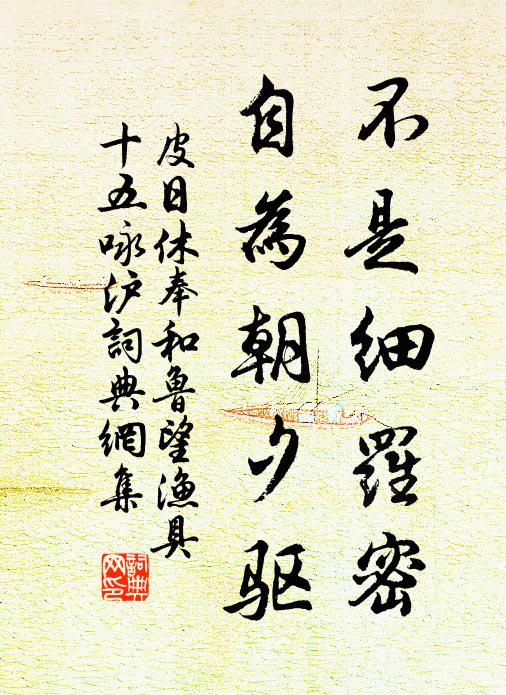 不是细罗密
自為朝夕驱
皮日休奉和魯望漁具
十五咏沪詞典網集
詞典网印